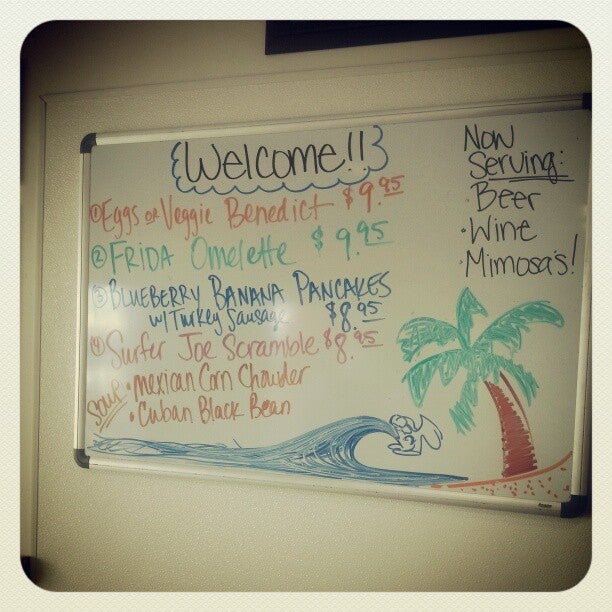 Welcome!!
① Eggs or Veggie Benedict $9.95
② FRIDA Omelette $9.95
③ BLUEBERRY BANANA PANCAKES
w/ Turkey Sausage $8.95
④ Surfer Joe Scramble $8.95
Soup • Mexican Corn Chowder
• Cuban Black Bean
Now
Serving:
Beer
• Wine
• Mimosa's!